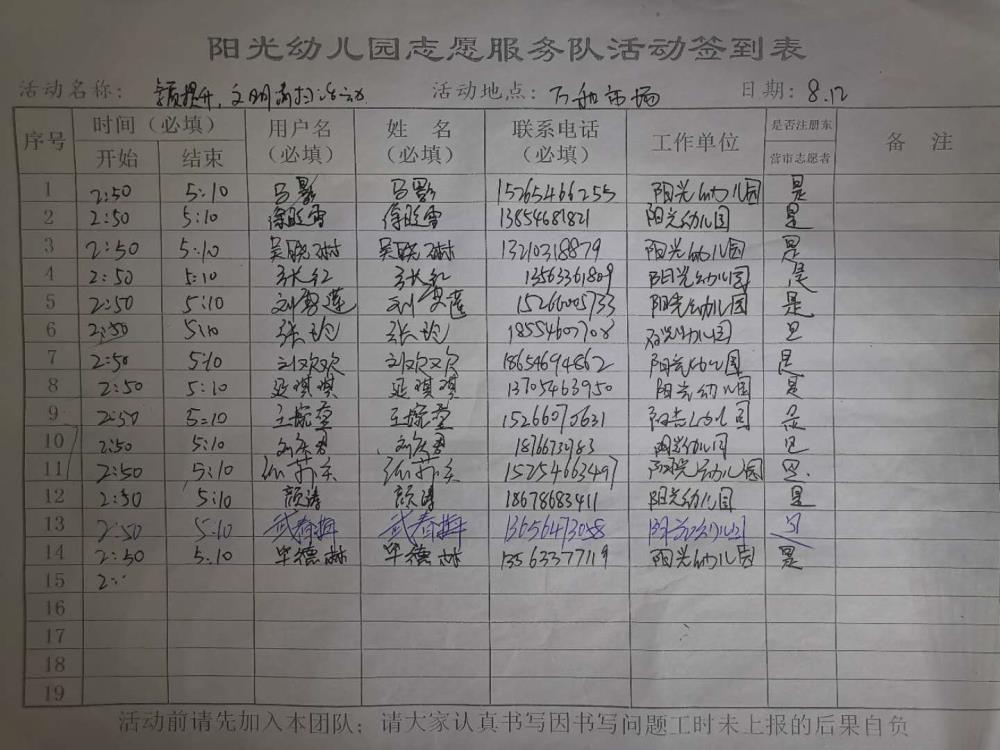 阳光幼儿园志愿服务队活动签到表
活动名称： 文明 活动 活动地点：万和市场 日期：8.12
序号 时间（必填） 用户名（必填） 姓 名（必填） 联系电话（必填） 工作单位 是否注册东营市志愿者 备 注
开始 结束
1 2:50 5:10 马影 马影 15265466255 阳光幼儿园 是
2 2:50 5:10 徐 雪 徐 雪 13854681821 阳光幼儿园 是
3 2:50 5:10 吴晓琳 吴晓琳 13210318879 阳光幼儿园 是
4 2:50 5:10 张红 张红 13563361809 阳光幼儿园 是
5 2:50 5:10 刘 莲 刘 莲 15266005733 阳光幼儿园 是
6 2:50 5:10 张 张 18554607708 阳光幼儿园 是
7 2:50 5:10 刘欢欢 刘欢欢 18654694862 阳光幼儿园 是
8 2:50 5:10 延琪琪 延琪琪 13705463950 阳光幼儿园 是
9 2:50 5:10 王 王 15266070631 阳光幼儿园 是
10 2:50 5:10 刘 君 刘 君 阳光幼儿园 是
11 2:50 5:10 15254663497 阳光幼儿园 是.
12 2:50 5:10 颜涛 颜涛 18678683411 阳光幼儿园 是
13 2:50 5:10 武春梅 武春梅 13656473058 阳光幼儿园 是
14 2:50 5:10 毕德琳 毕德琳 13563377719 阳光幼儿园 是
15 2:
16
17
18
19
活动前请先加入本团队；请大家认真书写因书写问题工时未上报的后果自负